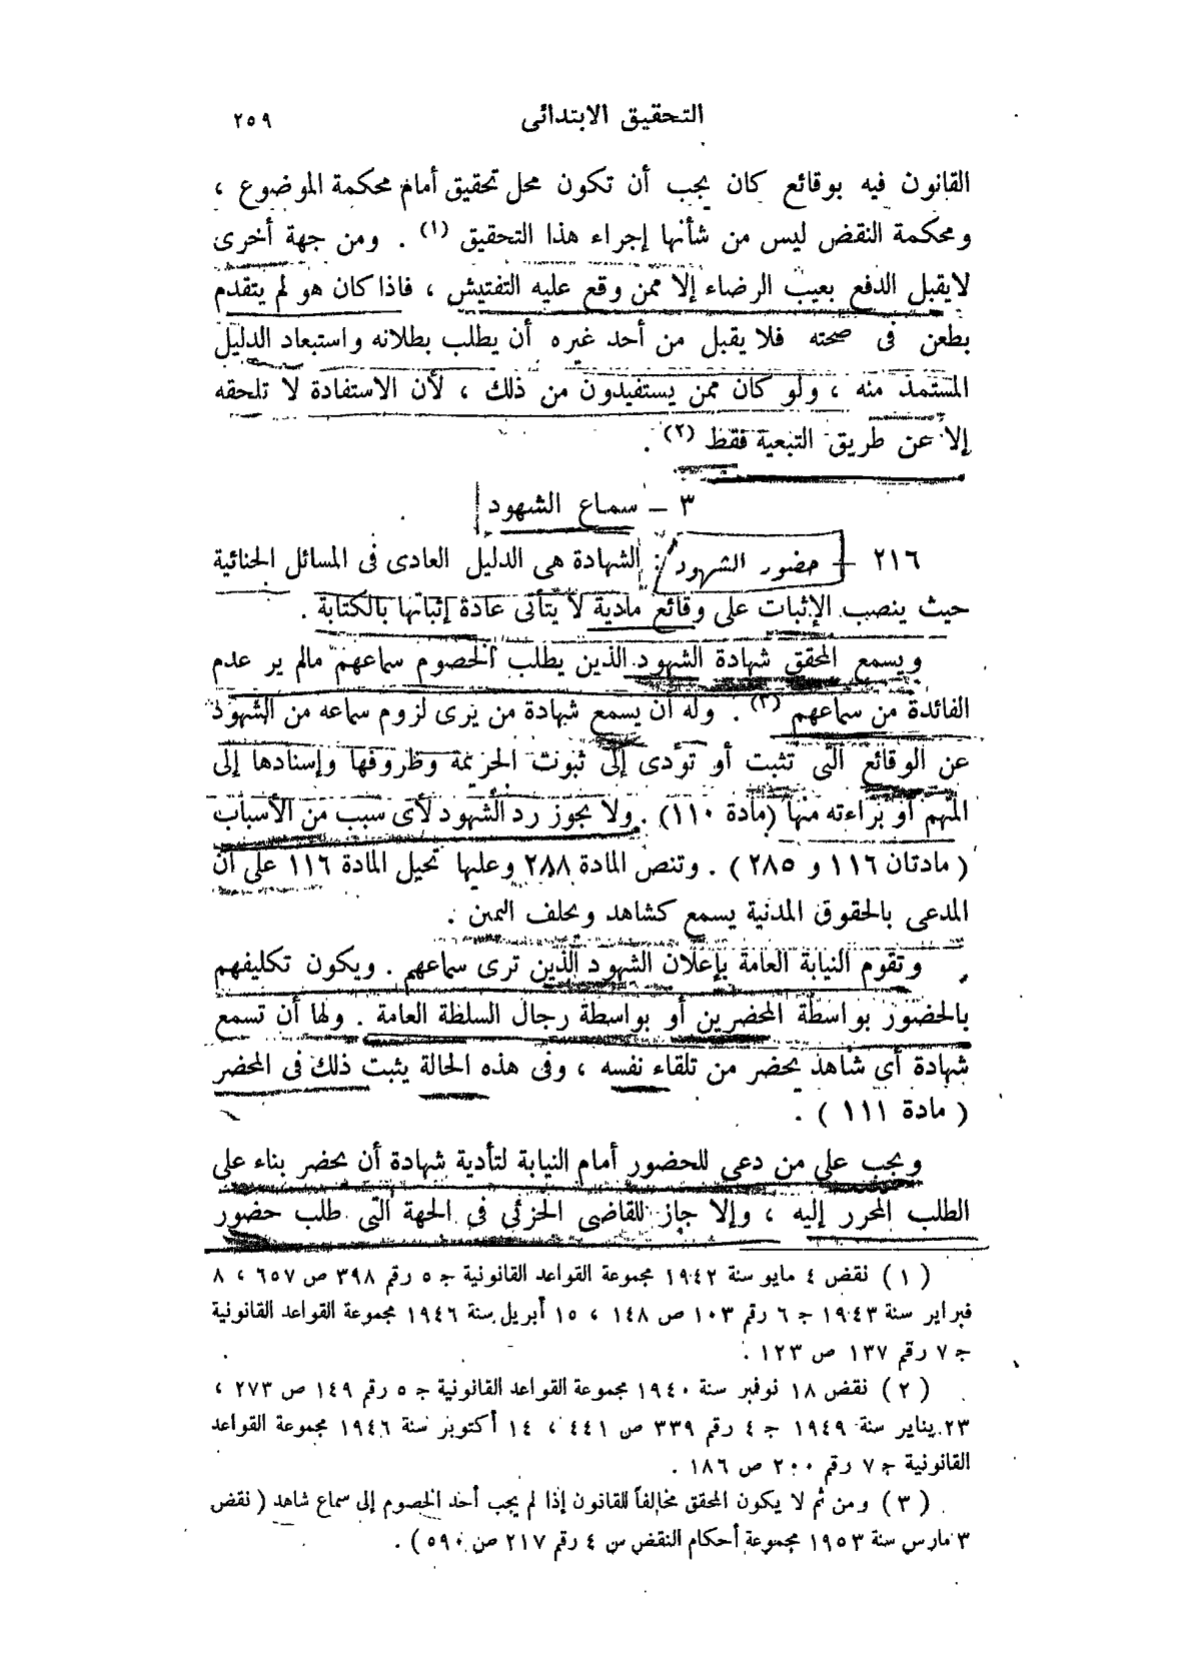 التحقيق الابتدائى ٢٥٩
القانون فيه بوقائع كان يجب أن تكون محل تحقيق أمام محكمة الموضوع ،
ومحكمة النقض ليس من شأنها إجراء هذا التحقيق (١) . ومن جهة أخرى
لايقبل الدفع بعيب الرضاء إلا ممن وقع عليه التفتيش ، فاذا كان هو لم يتقدم
بطعن فى صحته فلا يقبل من أحد غيره أن يطلب بطلانه واستبعاد الدليل
المستمد منه ، ولو كان ممن يستفيدون من ذلك ، لأن الاستفادة لا تلحقه
إلا عن طريق التبعية فقط (٢) .
٣ – سماع الشهود
٢١٦ – حضور الشهود : الشهادة هى الدليل العادى فى المسائل الجنائية
حيث ينصب الإثبات على وقائع مادية لا يتأتى عادة إثباتها بالكتابة .
ويسمع المحقق شهادة الشهود الذين يطلب الخصوم سماعهم مالم ير عدم
الفائدة من سماعهم (٣) . وله أن يسمع شهادة من يرى لزوم سماعه من الشهود
عن الوقائع التى تثبت أو تؤدى إلى ثبوت الجريمة وظروفها وإسنادها إلى
المتهم أو براءته منها (مادة ١١٠) . ولا يجوز رد الشهود لأى سبب من الأسباب
( مادتان ١١٦ و ٢٨٥ ) . وتنص المادة ٢٨٨ وعليها تحيل المادة ١١٦ على أن
المدعى بالحقوق المدنية يسمع كشاهد ويحلف اليمين .
وتقوم النيابة العامة بإعلان الشهود الذين ترى سماعهم . ويكون تكليفهم
بالحضور بواسطة المحضرين أو بواسطة رجال السلطة العامة . ولها أن تسمع
شهادة أى شاهد يحضر من تلقاء نفسه ، وفى هذه الحالة يثبت ذلك فى المحضر
( مادة ١١١ ) .
ويجب على من دعى للحضور أمام النيابة لتأدية شهادة أن يحضر بناء على
الطلب المحرر إليه ، وإلا جاز للقاضى الجزئى فى الجهة التى طلب حضور
( ١ ) نقض ٤ مايو سنة ١٩٤٢ مجموعة القواعد القانونية ج ٥ رقم ٣٩٨ ص ٦٥٧ ، ٨
فبراير سنة ١٩٤٣ ج ٦ رقم ١٠٣ ص ١٤٨ ، ١٥ أبريل سنة ١٩٤٦ مجموعة القواعد القانونية
ج ٧ رقم ١٣٧ ص ١٢٣ .
( ٢ ) نقض ١٨ نوفبر سنة ١٩٤٠ مجموعة القواعد القانونية ج ٥ رقم ١٤٩ ص ٢٧٣ ،
٢٣ يناير سنة ١٩٤٩ ج ٤ رقم ٣٣٩ ص ٤٤١ ، ١٤ أكتوبر سنة ١٩٤٦ مجموعة القواعد
القانونية ج ٧ رقم ٢٠٠ ص ١٨٦ .
( ٣ ) ومن ثم لا يكون المحقق مخالفاً للقانون إذا لم يجب أحد الخصوم إلى سماع شاهد ( نقض
٣ مارس سنة ١٩٥٣ مجموعة أحكام النقض س ٤ رقم ٢١٧ ص ٥٩٠ ) .